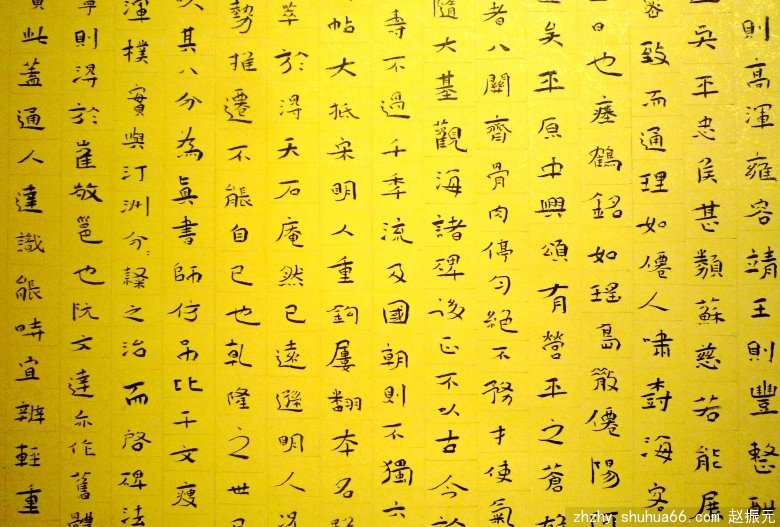 則高渾雍容靖王則豐整
吳平忠侯甚類蘇慈若能展
致而通理如僊人嘯樹海客
日也瘞鶴銘如瑤島散僊陽
矣平原中興頌有營平之蒼
者八關齊骨肉停勻絕不務才使氣
隨大基觀海諸碑後正不以古今
壽不過千季流及國朝則不獨六
帖大抵宋明人重鉤屢翻本名
萃於淂天石庵然已遠遜明人
勢推遷不能自已也乾隆之世已
其八分為真書師仿吊比干文瘦
渾樸實與汀洲分隸之治而啓碑法
則淂於崔敬邕也阮文達亦作舊體
此蓋通人達識能時宜辨輕重
zhzhy.shuhua66.com 赵振元